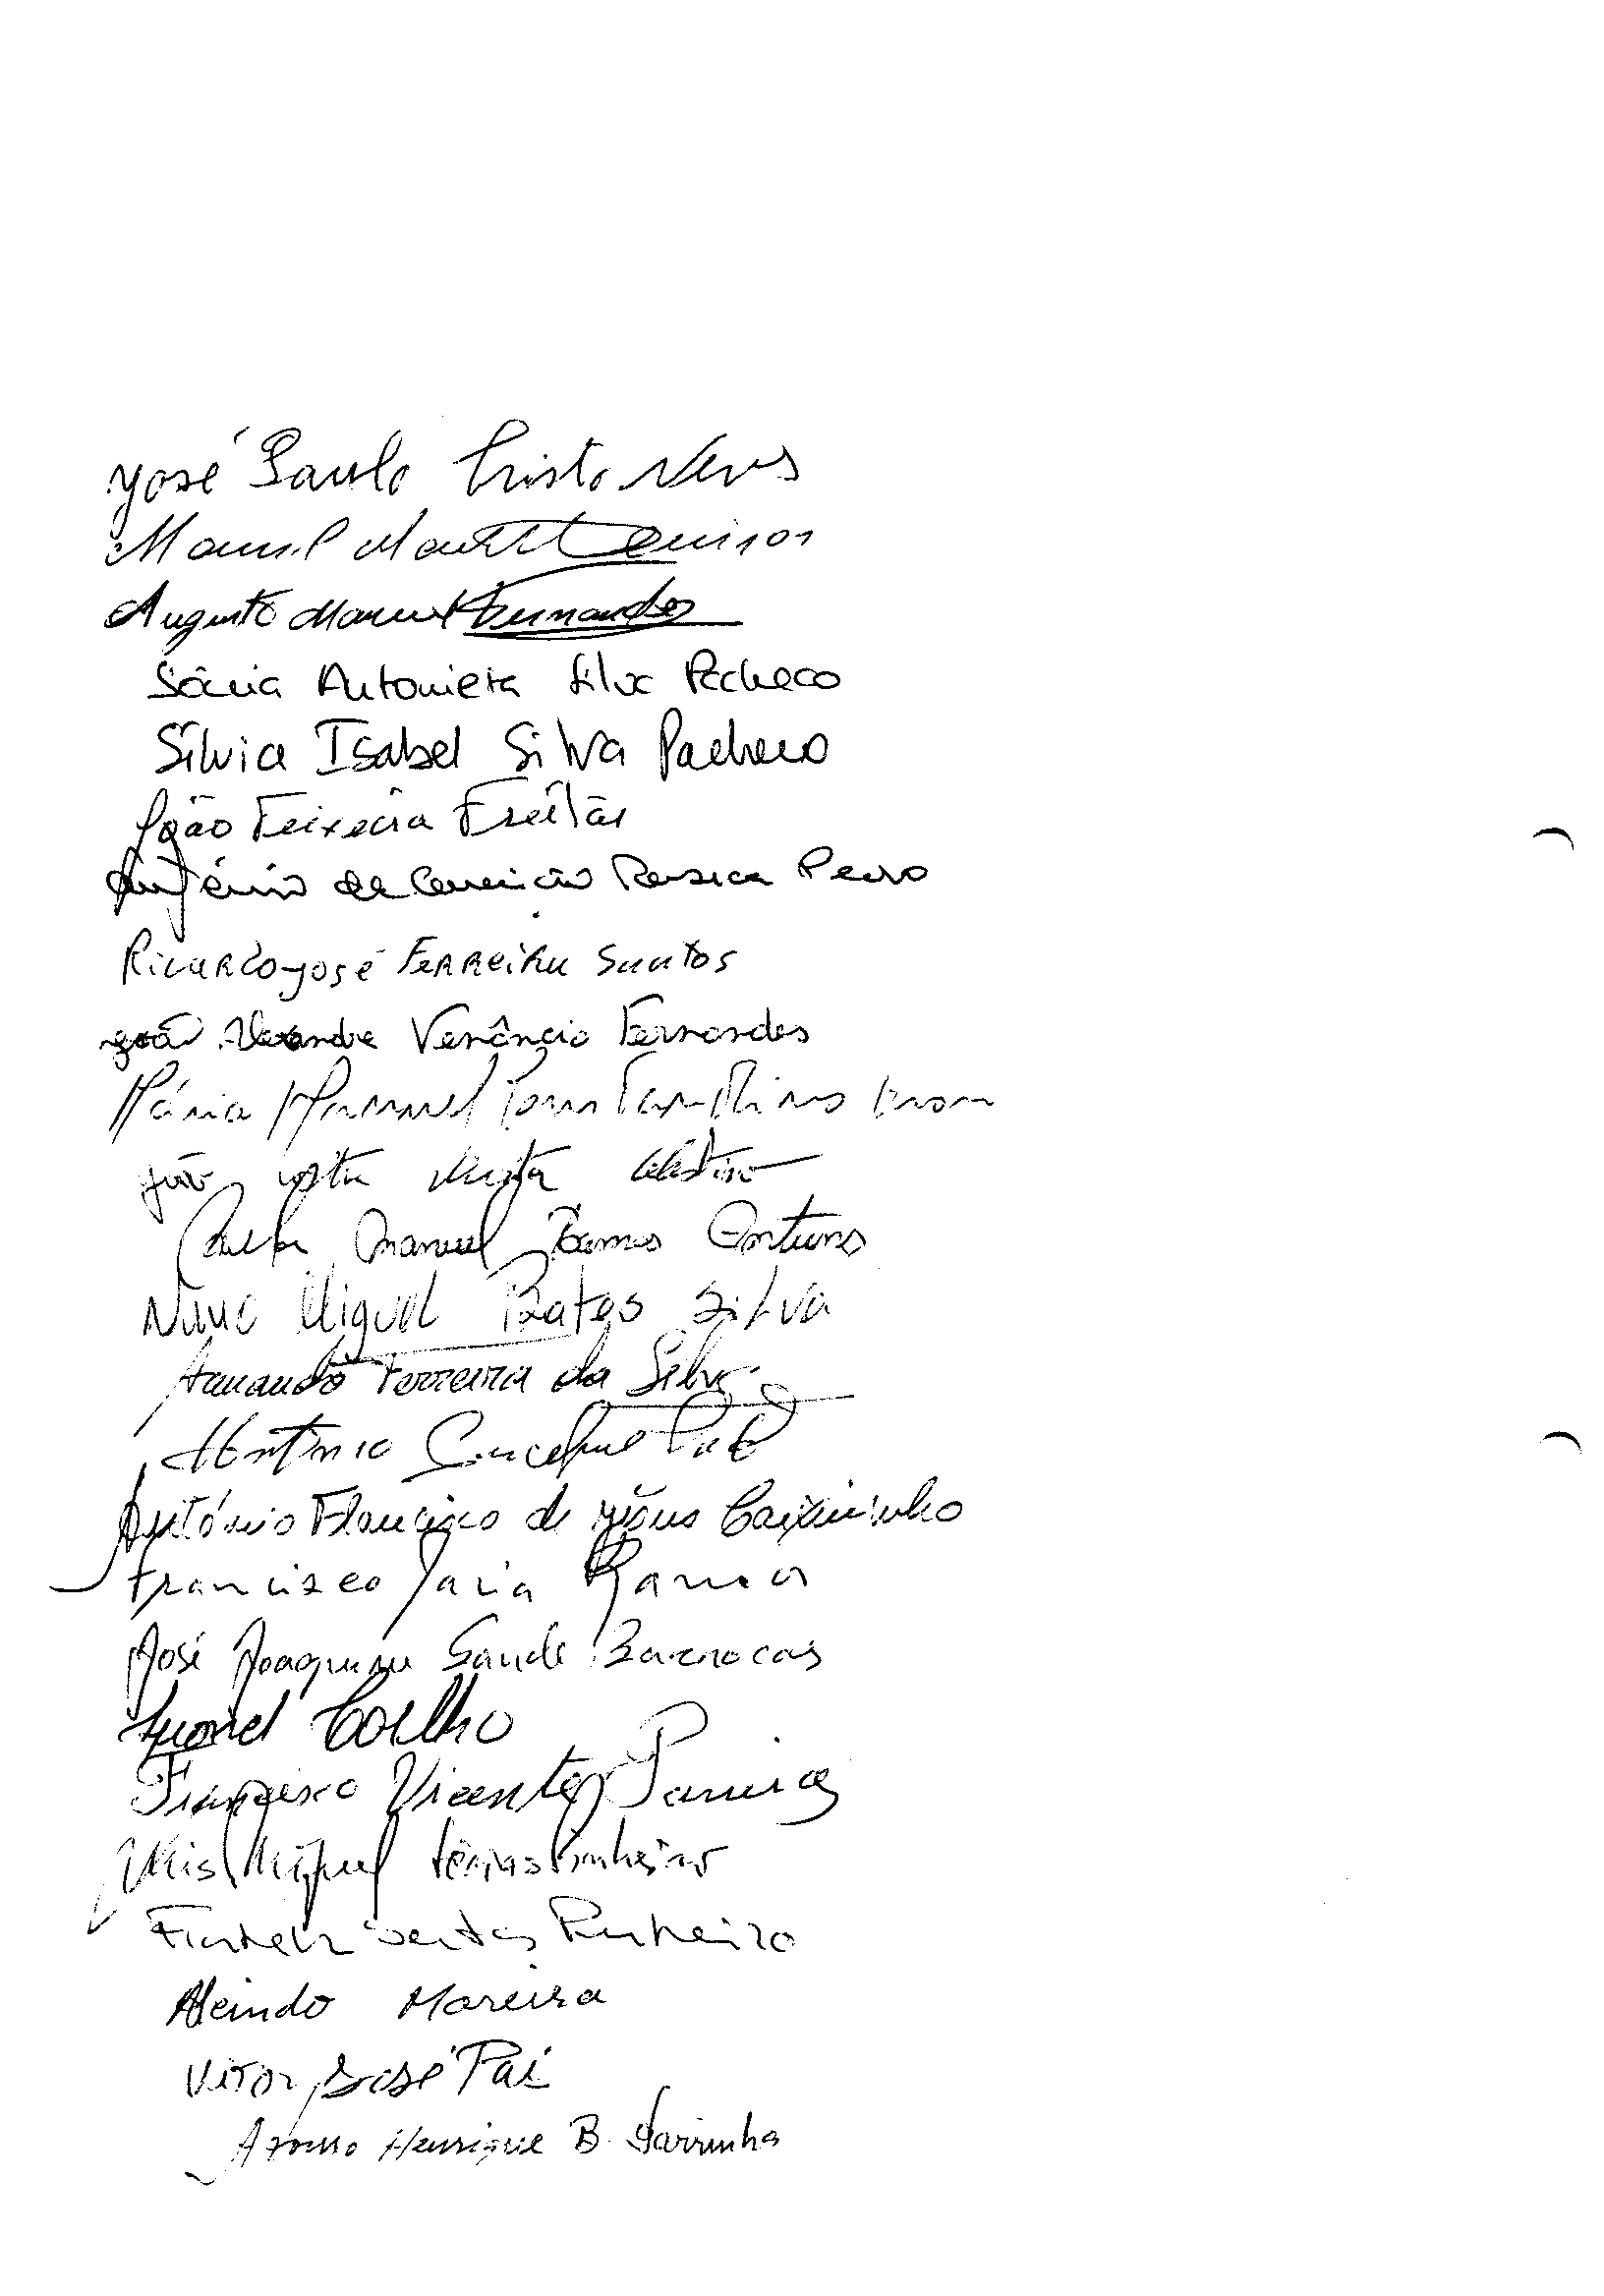 José Paulo Cristo Neves
Manuel
Augusto Manuel Fernandes
Sônia Antonieta Silva Pacheco
Sílvia Isabel Silva Pacheco
João Teixeira Freitas
António da Conceição Pedro
Ricardo José Ferreira Santos
João Alexandre Venâncio Fernandes
Mária Manuel Constantino
João Costa
Carlos Manuel Ramos Antunes
Nuno Miguel Batos Silva
Armando Ferreira da Silva
António
António Francisco de Jesus Caixinho
Francisco Ramos
José Joaquim Saude Barrocas
Leonel Coelho
Francisco Vicente Parreira
Luis Miguel Pinheiro
Pinheiro
Alcindo Moreira
Vitor José Pai
Afonso Henrique B. Farrinha